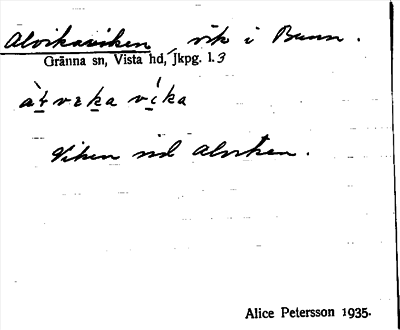 Alvikaviken, vik i Bunn.
Gränna sn, Vista hd, Jkpg. l. 3
vika
Viken vid Alviken.
Alice Petersson 1935.